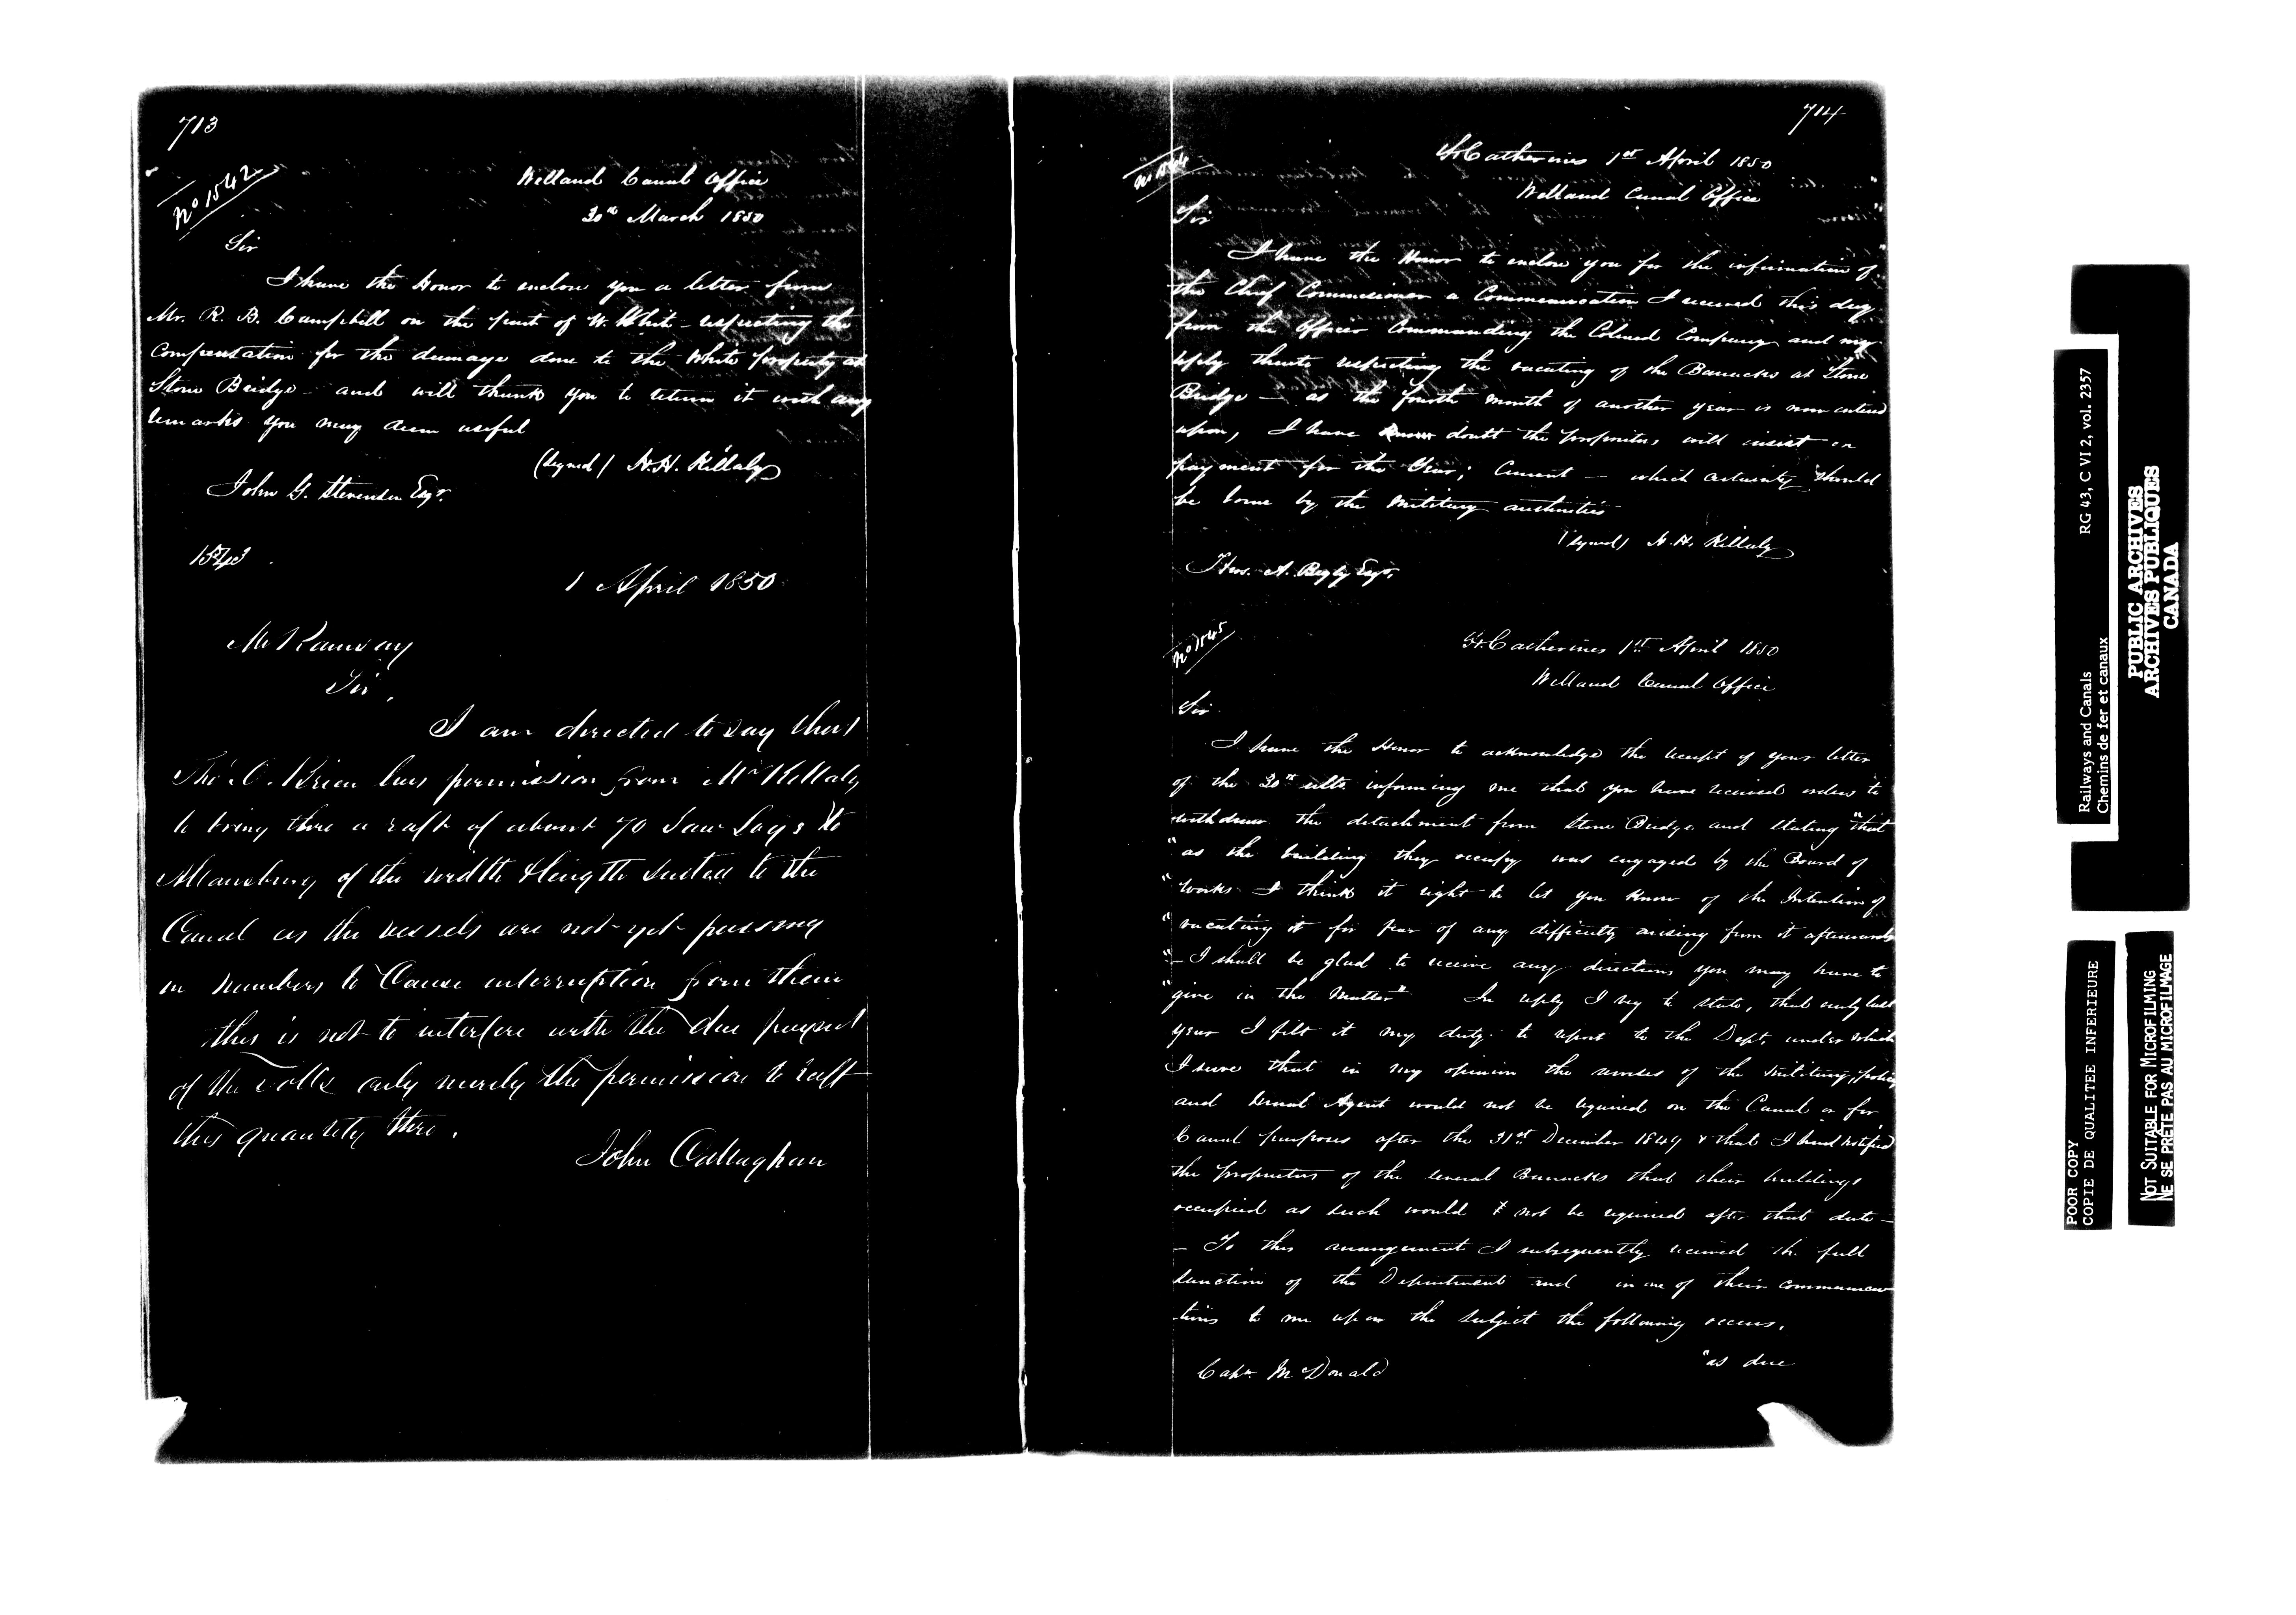 713
No 1542
Welland Canal Office
30th March 1850
Sir
I have the Honor to enclose you a letter from
Mr. R. B. Campbell on the part of W. White - respecting the
Compensation for the damage done to the White property at
Stone Bridge - and will thank you to return it with any
remarks you may deem useful
(Signed) H. H. Killaly
John G. Stevenson Esqr.
1543
1 April 1850
Mr Ramsay
Sir,
I am directed to say that
Thos. O. Brien has permission from Mr Killaly
to bring thro a raft of about 70 Saw Logs to
Allanburg of the width & length suited to the
Canal as the vessels are not yet passing
in numbers to Cause interruption from them
this is not to interfere with the due paymt
of the Tolls only merely the permission to raft
this quantity thro.
John Callaghan
714
No 1544
St Catherines 1st April 1850
Welland Canal Office
Sir
I have the Honor to enclose you for the information of
the Chief Commissioner a Communication I received this day
from the Officer Commanding the Colored Company and my
reply thereto respecting the vacating of the Barracks at Stone
Bridge - as the fourth month of another year is now entered
upon, I have doubt the proprietors will insist on
payment for the Year; Current - which certainly should
be borne by the Military authorities
(Signed) H. H. Killaly
Thos. A. Begly Esqr.
No 1545
St. Catherines 1st April 1850
Welland Canal Office
Sir
I have the Honor to acknowledge the receipt of your letter
of the 30th ulto. informing me that you have received orders to
withdraw the detachment from Stone Bridge and stating "that
"as the building they occupy was engaged by the Board of
"Works I think it right to let you know of the Intention of
"vacating it for fear of any difficulty arising from it afterwards
"- I shall be glad to receive any directions you may have to
"give in the Matter" In reply I beg to state, that early last
year I felt it my duty to report to the Dept. under which
I serve that in my opinion the services of the Military, police
and Agent would not be required on the Canal or for
Canal purposes after the 31st December 1849 & that I had notified
the proprietors of the several Barracks that their buildings
occupied as such would not be required after that date -
- To this arrangement I subsequently received the full
sanction of the Department and in one of their communica
-tions to me upon the subject the following occurs,
"as due
Captn McDonald
Railways and Canals
Chemins de fer et canaux
RG 43, C VI 2, vol. 2357
PUBLIC ARCHIVES
ARCHIVES PUBLIQUES
CANADA
POOR COPY
COPIE DE QUALITEE INFERIEURE
NOT SUITABLE FOR MICROFILMING
NE SE PRÊTE PAS AU MICROFILMAGE